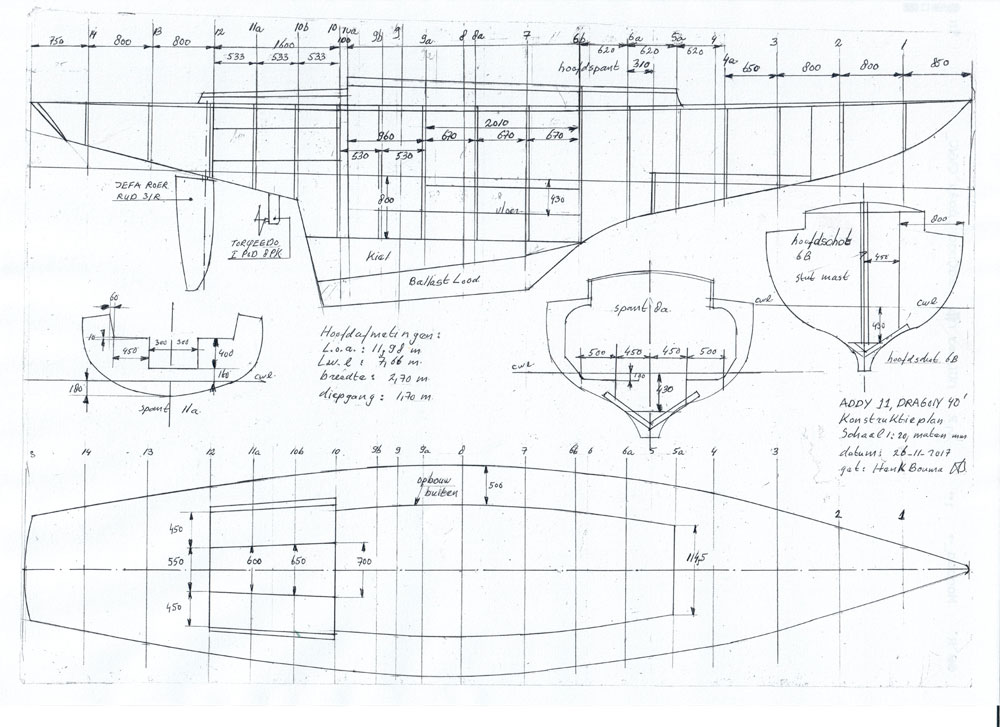 14 13 12 11a 10b 10 10a 9b 9 9a 8 8a 7 6b 6a 5a 4 3 2 1
750 800 800 1600 620 620 620 4a 650 800 800 850
533 533 533 hoofdspant 310
2010
960 670 670 670
530 530
JEFA ROER
RUD 31R
800 430
vloer
TORQEEDO
I POD 8PK
Kiel
Ballast Lood
hoofdschot
6B
stut mast
800
450
430
cwl
hoofdschot 6B
60
10
450 300 300 400
180
180
cwl
spant 11a.
Hoofdafmetingen:
L.o.a.: 11,98 m
Lwl: 7,66 m
breedte: 2,70 m
diepgang: 1,70 m.
spant 8a.
cwl
500 450 450 500
170
430
cwl
ADDY 11, DRAGNY 40'
Konstruktieplan
Schaal 1:20, maten mm
datum: 26-11-2017
get: Henk Bouma
14 13 12 11a 10b 10 9b 9 9a 8 7 6b 6 6a 5 5a 4 3
opbouw
buiten
506
2 1
450
550 600 650 700
450
1145